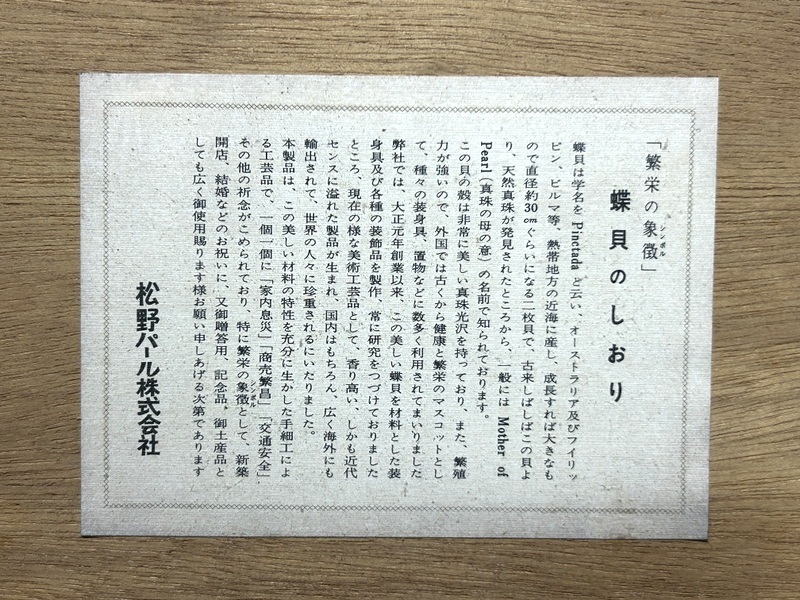 「繁栄の象徴シンボル」
蝶貝のしおり
蝶貝は学名を Pinctada と云い、オーストラリア及びフイリッ
ピン、ビルマ等、熱帯地方の近海に産し、成長すれば大きなも
ので直径約30cmぐらいになる二枚貝で、古来しばしばこの貝よ
り、天然真珠が発見されたところから、一般には Mother of
Pearl（真珠の母の意）の名前で知られております。
この貝の殻は非常に美しい真珠光沢を持っており、また、繁殖
力が強いので、外国では古くから健康と繁栄のマスコットとし
て、種々の装身具、置物などに数多く利用されてまいりました
弊社では、大正元年創業以来、この美しい蝶貝を材料とした装
身具及び各種の装飾品を製作、常に研究をつづけておりました
ところ、現在の様な美術工芸品として、香り高い、しかも近代
センスに溢れた製品が生まれ、国内はもちろん、広く海外にも
輸出されて、世界の人々に珍重されるにいたりました。
本製品は、この美しい材料の特性を充分に生かした手細工によ
る工芸品で、一個一個に「家内息災」「商売繁昌」「交通安全」
その他の祈念がこめられており、特に繁栄の象徴シンボルとして、新築
開店、結婚などのお祝いに、又御贈答用、記念品、御土産品と
しても広く御使用賜ります様お願い申しあげる次第であります
松野パール株式会社